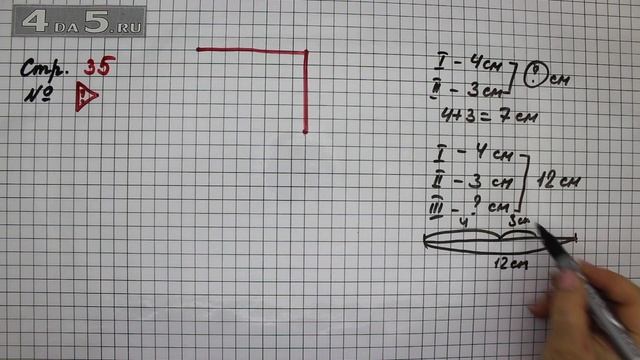 4 ДА 5.RU
Стр. 35
№ !
I - 4 см
II - 3 см
? см
4+3 = 7 см
I - 4 см
II - 3 см
III - ? см
12 см
4
3 см
12 см